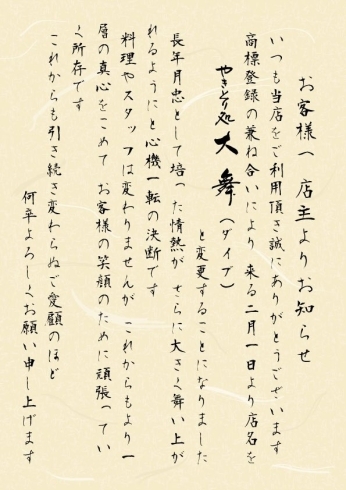 お客様へ 店主よりお知らせ
いつも当店をご利用頂き誠にありがとうございます
商標登録の兼ね合いにより 来る二月一日より店名を
やきとり処 大舞(ダイブ)
と変更することになりました
長年月忠として培った情熱が さらに大きく舞い上が
れるようにと心機一転の決断です
料理やスタッフは変わりませんが これからもより一
層の真心をこめて お客様の笑顔のために頑張ってい
く所存です
これからも引き続き変わらぬご愛顧のほど
何卒よろしくお願い申し上げます